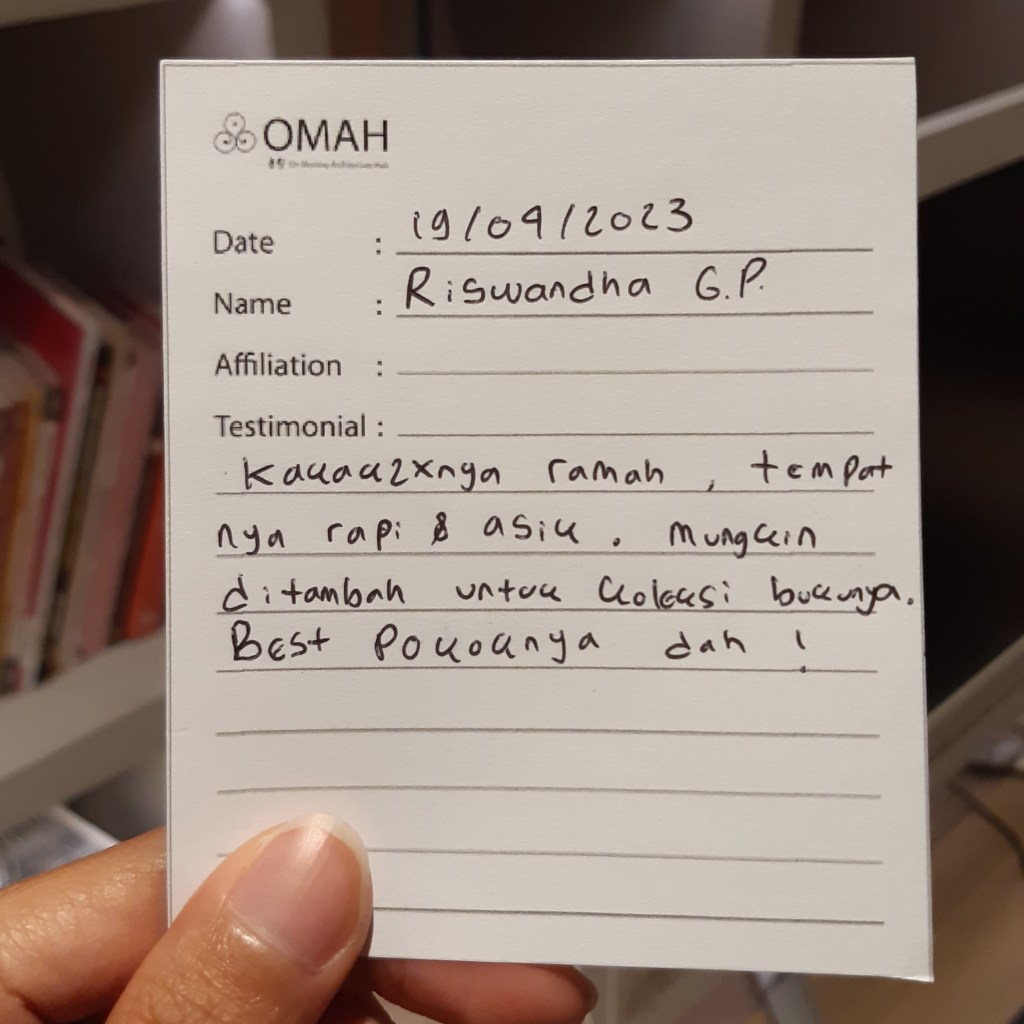 OMAH
Date : 19/09/2023
Name : Riswandha G.P.
Affiliation :
Testimonial :
Kakak2xnya ramah, tempat
nya rapi & asik. Mungkin
ditambah untuk koleksi bukunya.
Best Pokoknya dah !